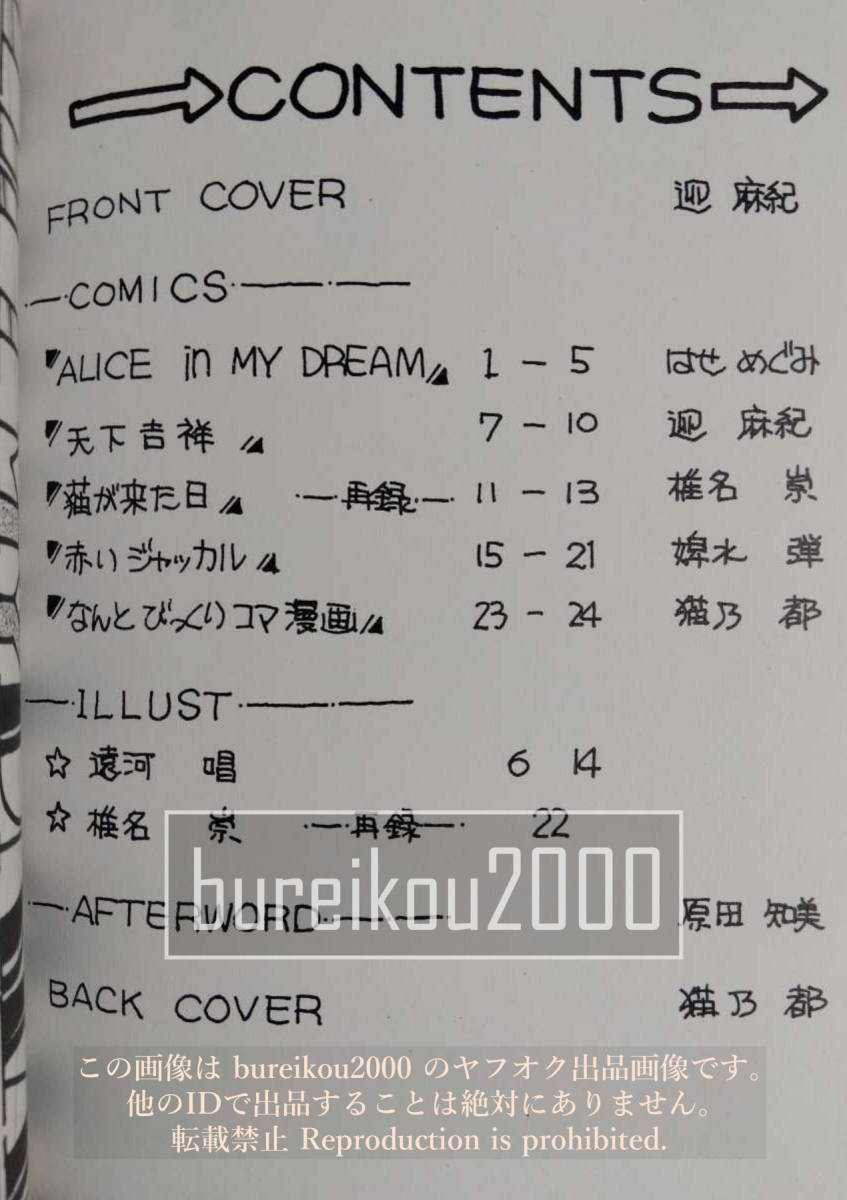 CONTENTS
FRONT COVER 迎 麻紀
COMICS
『ALICE in MY DREAM』 1 - 5 はせ めぐみ
『天下吉祥』 7 - 10 迎 麻紀
『猫が来た日』 再録 11 - 13 椎名 崇
『赤いジャッカル』 15 - 21 婢水 弾
『なんとびっくりコマ漫画』 23 - 24 猫乃 都
ILLUST
☆ 遠河 唱 6 14
☆ 椎名 崇 再録 22
bureikou2000
AFTERWORD 原田 知美
BACK COVER 猫乃 都
この画像は bureikou2000 のヤフオク出品画像です。
他のIDで出品することは絶対にありません。
転載禁止 Reproduction is prohibited.